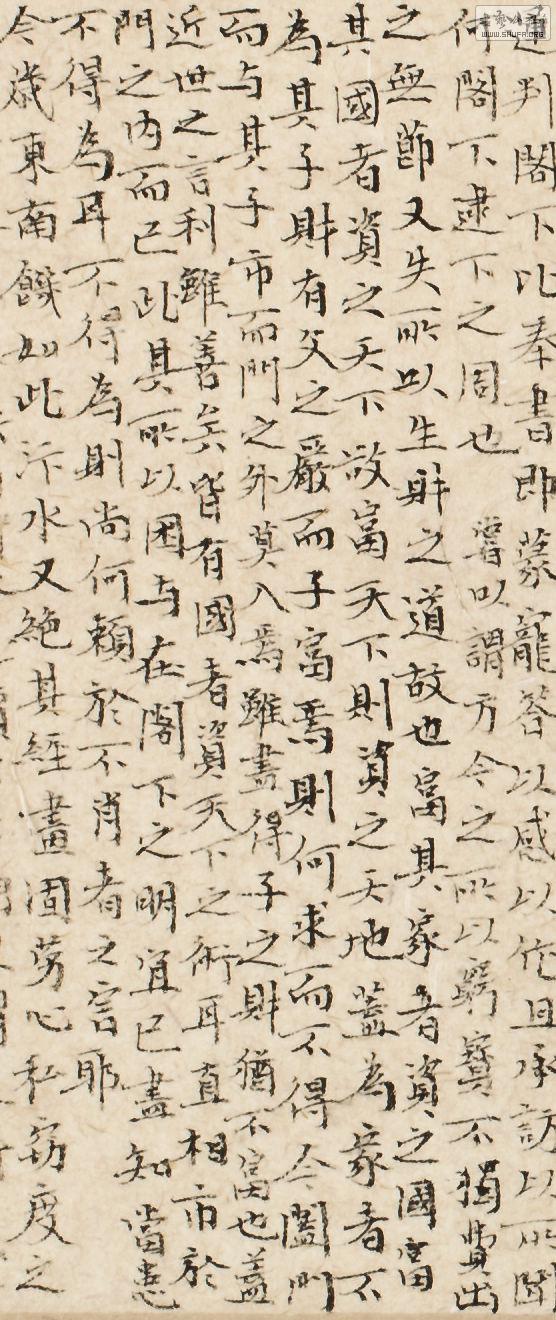 判閣下比奉書即蒙寵答以感以怍且承訪以所聞
何閣下逮下之周也嘗以謂方今之所以窮不獨費出
之無節又失所以生財之道故也富其家者資之國富
其國者資之天下欲富天下則資之天地蓋為家者不
為其子財有父之嚴而子富焉則何求而不得今闔門
而与其子市而門之外莫入焉雖盡得子之財猶不富也蓋
近世之言利雖善矣皆有國者資天下之術耳直相市於
門之内而已此其所以困与在閣下之明宜已盡知當患
不得為耳不得為則尚何賴於不肖者之言耶
今歲東南饑如此汴水又絕其經畫固勞心私竊度之